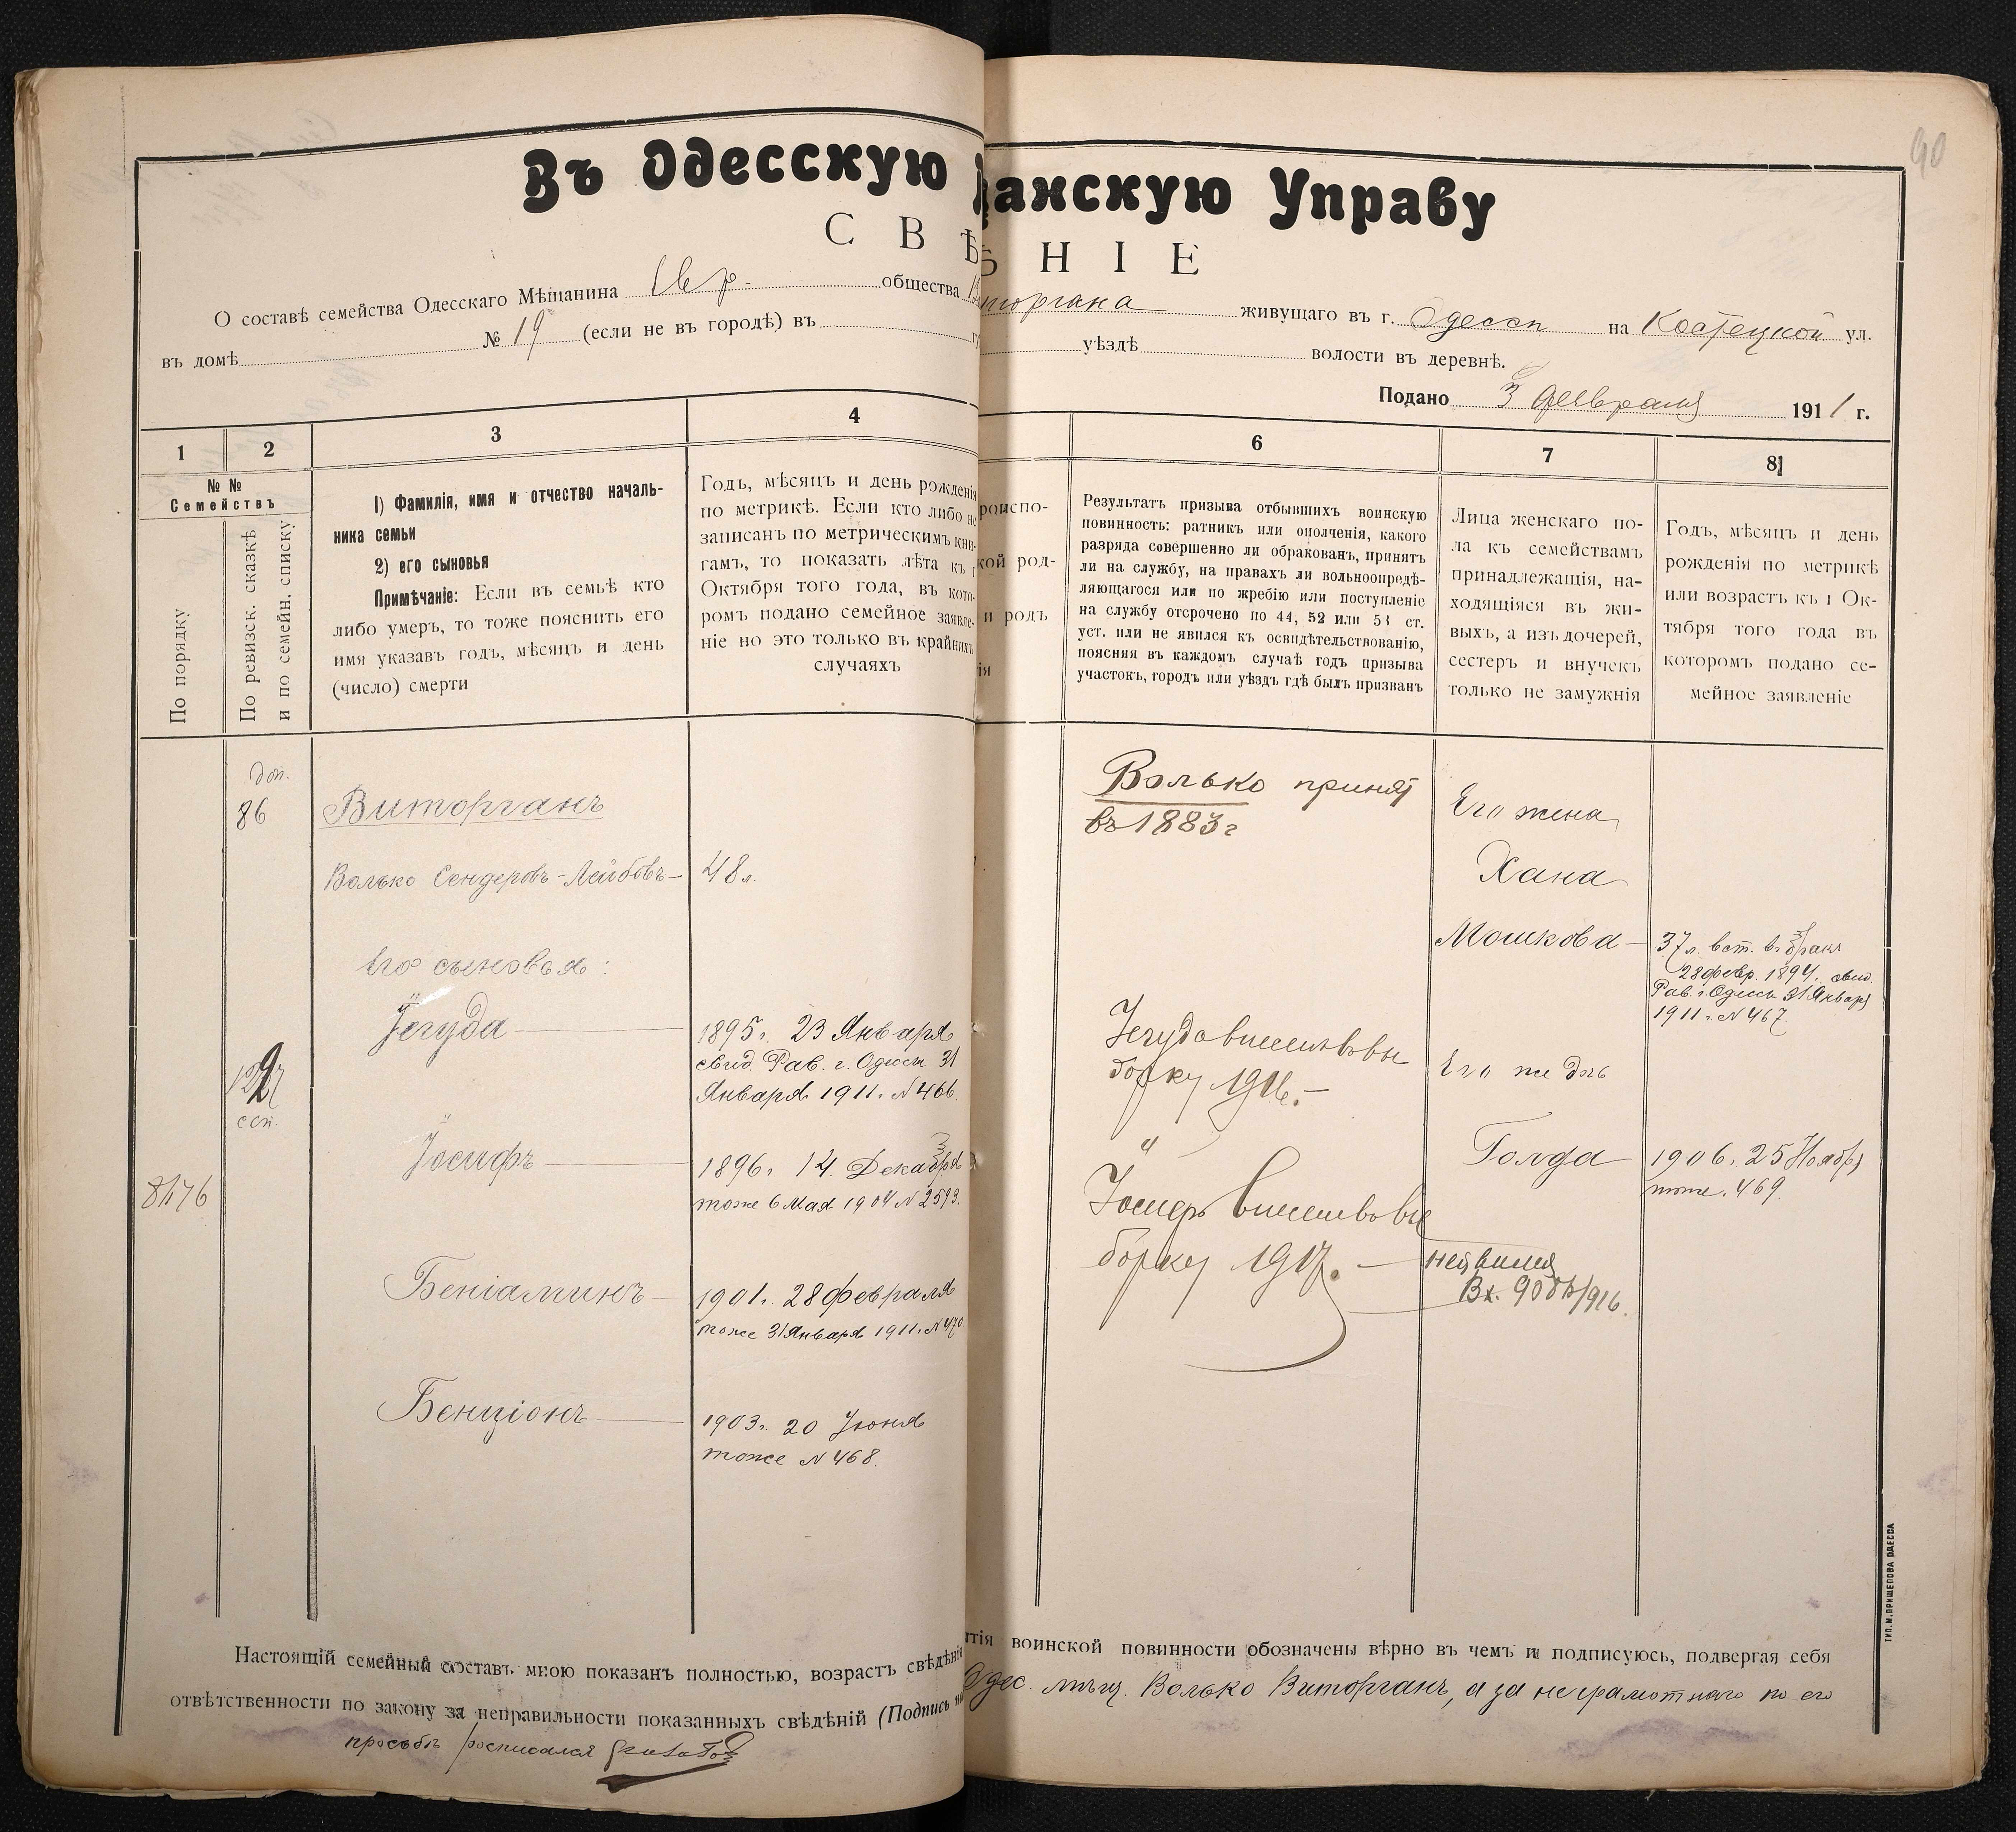 90
Въ Одесскую
щанскую Управу
С В Ѣ
Н І Е
О составѣ семейства Одесскаго Мѣщанина Евр. общества
торгана живущаго въ г. Одессѣ на Костецкой ул.
въ домѣ № 19 (если не въ городѣ) въ
уѣздѣ волости въ деревнѣ.
Подано 3 Февраля 1911 г.
1
2
3
4
6
7
8
№ №
Семействъ
По порядку
По ревизск. сказкѣ
и по семейн. списку
1) Фамилія, имя и отчество началь-
ника семьи
2) его сыновья
Примѣчаніе: Если въ семьѣ кто
либо умеръ, то тоже пояснить его
имя указавъ годъ, мѣсяцъ и день
(число) смерти
Годъ, мѣсяцъ и день рожденія
по метрикѣ. Если кто либо не
записанъ по метрическимъ кни-
гамъ, то показать лѣта къ 1
Октября того года, въ кото-
ромъ подано семейное заявле-
ніе но это только въ крайнихъ
случаяхъ
роиспо-
кой род-
и родъ
ія
Результатъ призыва отбывшихъ воинскую
повинность: ратникъ или ополченія, какого
разряда совершенно ли обракованъ, принятъ
ли на службу, на правахъ ли вольноопредѣ-
ляющагося или по жребію или поступленіе
на службу отсрочено по 44, 52 или 53 ст.
уст. или не явился къ освидѣтельствованію,
поясняя въ каждомъ случаѣ годъ призыва
участокъ, городъ или уѣздъ гдѣ былъ призванъ
Лица женскаго по-
ла къ семействамъ
принадлежащія, на-
ходящіяся въ жи-
выхъ, а изъ дочерей,
сестеръ и внучекъ
только не замужнія
Годъ, мѣсяцъ и день
рожденія по метрикѣ
или возрастъ къ 1 Ок-
тября того года въ
которомъ подано се-
мейное заявленіе
доп.
86
Виторганъ
Волько Сендеровъ-Лейбовъ
48 л.
Его сыновья:
Іегуда
1895 г. 23 Января
свид. Рав. г. Одессы 31
Января 1911 г. № 466.
сем.
Іосифъ
1896 г. 14 Декабря
тоже 6 Мая 1904 № 2593.
8476
Беніаминъ
1901 г. 28 Февраля
тоже 31 Января 1911 г. № 470
Бенціонъ
1903 г. 20 Іюня
тоже № 468.
Волько принят
въ 1883 г
Іегуда внесенъ въ вы
борку 1916.
Іосифъ внесенъ въ вы
борку 1917.
не явился
Вх. /916.
Его жена
Хана
Мошкова
37 л. вст. въ бракъ
28 февр. 1894 г. свид.
Рав. г. Одессы 31 Января
1911 г. № 467
Его же дочь
Голда
1906 г. 25 Ноябр
тоже. 469.
Настоящій семейный составъ мною показанъ полностью, возрастъ свѣдѣнія
тія воинской повинности обозначены вѣрно въ чемъ и подписуюсь, подвергая себя
отвѣтственности по закону за неправильности показанныхъ свѣдѣній (Подпись
Одес. мѣщ. Волько Виторганъ, а за неграмотнаго по его
просьбѣ росписался
ТИП. М. ПРИЩЕПОВА ОДЕССА